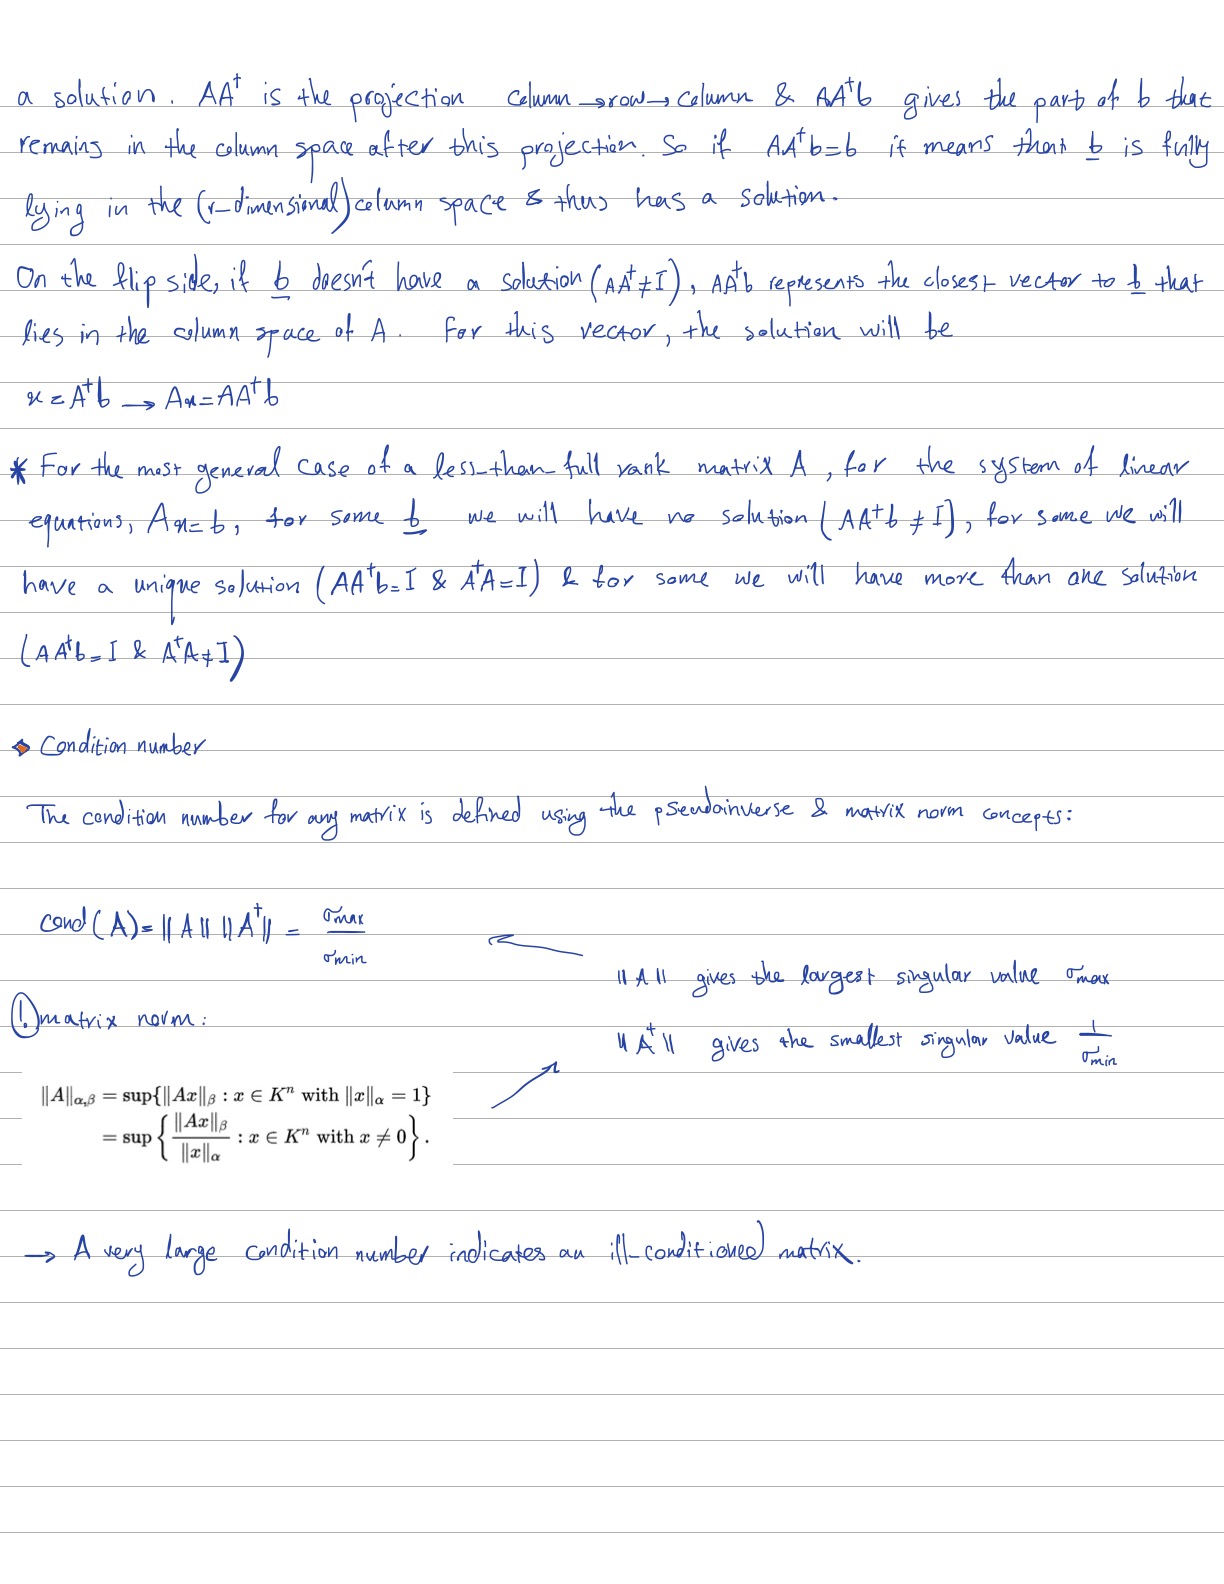 a solution. AA† is the projection column → row → column & AA†b gives the part of b that
remains in the column space after this projection. So if AA†b=b it means that b is fully
lying in the (r-dimensional) column space & thus has a solution.
On the flip side, if b doesn't have a solution (AA†≠I), AA†b represents the closest vector to b that
lies in the column space of A. For this vector, the solution will be
x = A†b → Ax = AA†b
* For the most general case of a less-than-full rank matrix A, for the system of linear
equations, Ax=b, for some b we will have no solution (AA†b ≠ I), for some we will
have a unique solution (AA†b=I & A†A=I) & for some we will have more than one solution
(AA†b=I & A†A≠I)
Condition number
The condition number for any matrix is defined using the pseudoinverse & matrix norm concepts:
cond(A) = ||A|| ||A†|| = σmax / σmin
||A|| gives the largest singular value σmax
! matrix norm:
||A†|| gives the smallest singular value 1/σmin
‖A‖α,β = sup{‖Ax‖β : x ∈ Kⁿ with ‖x‖α = 1}
= sup { ‖Ax‖β / ‖x‖α : x ∈ Kⁿ with x ≠ 0 } .
→ A very large condition number indicates an ill-conditioned matrix.